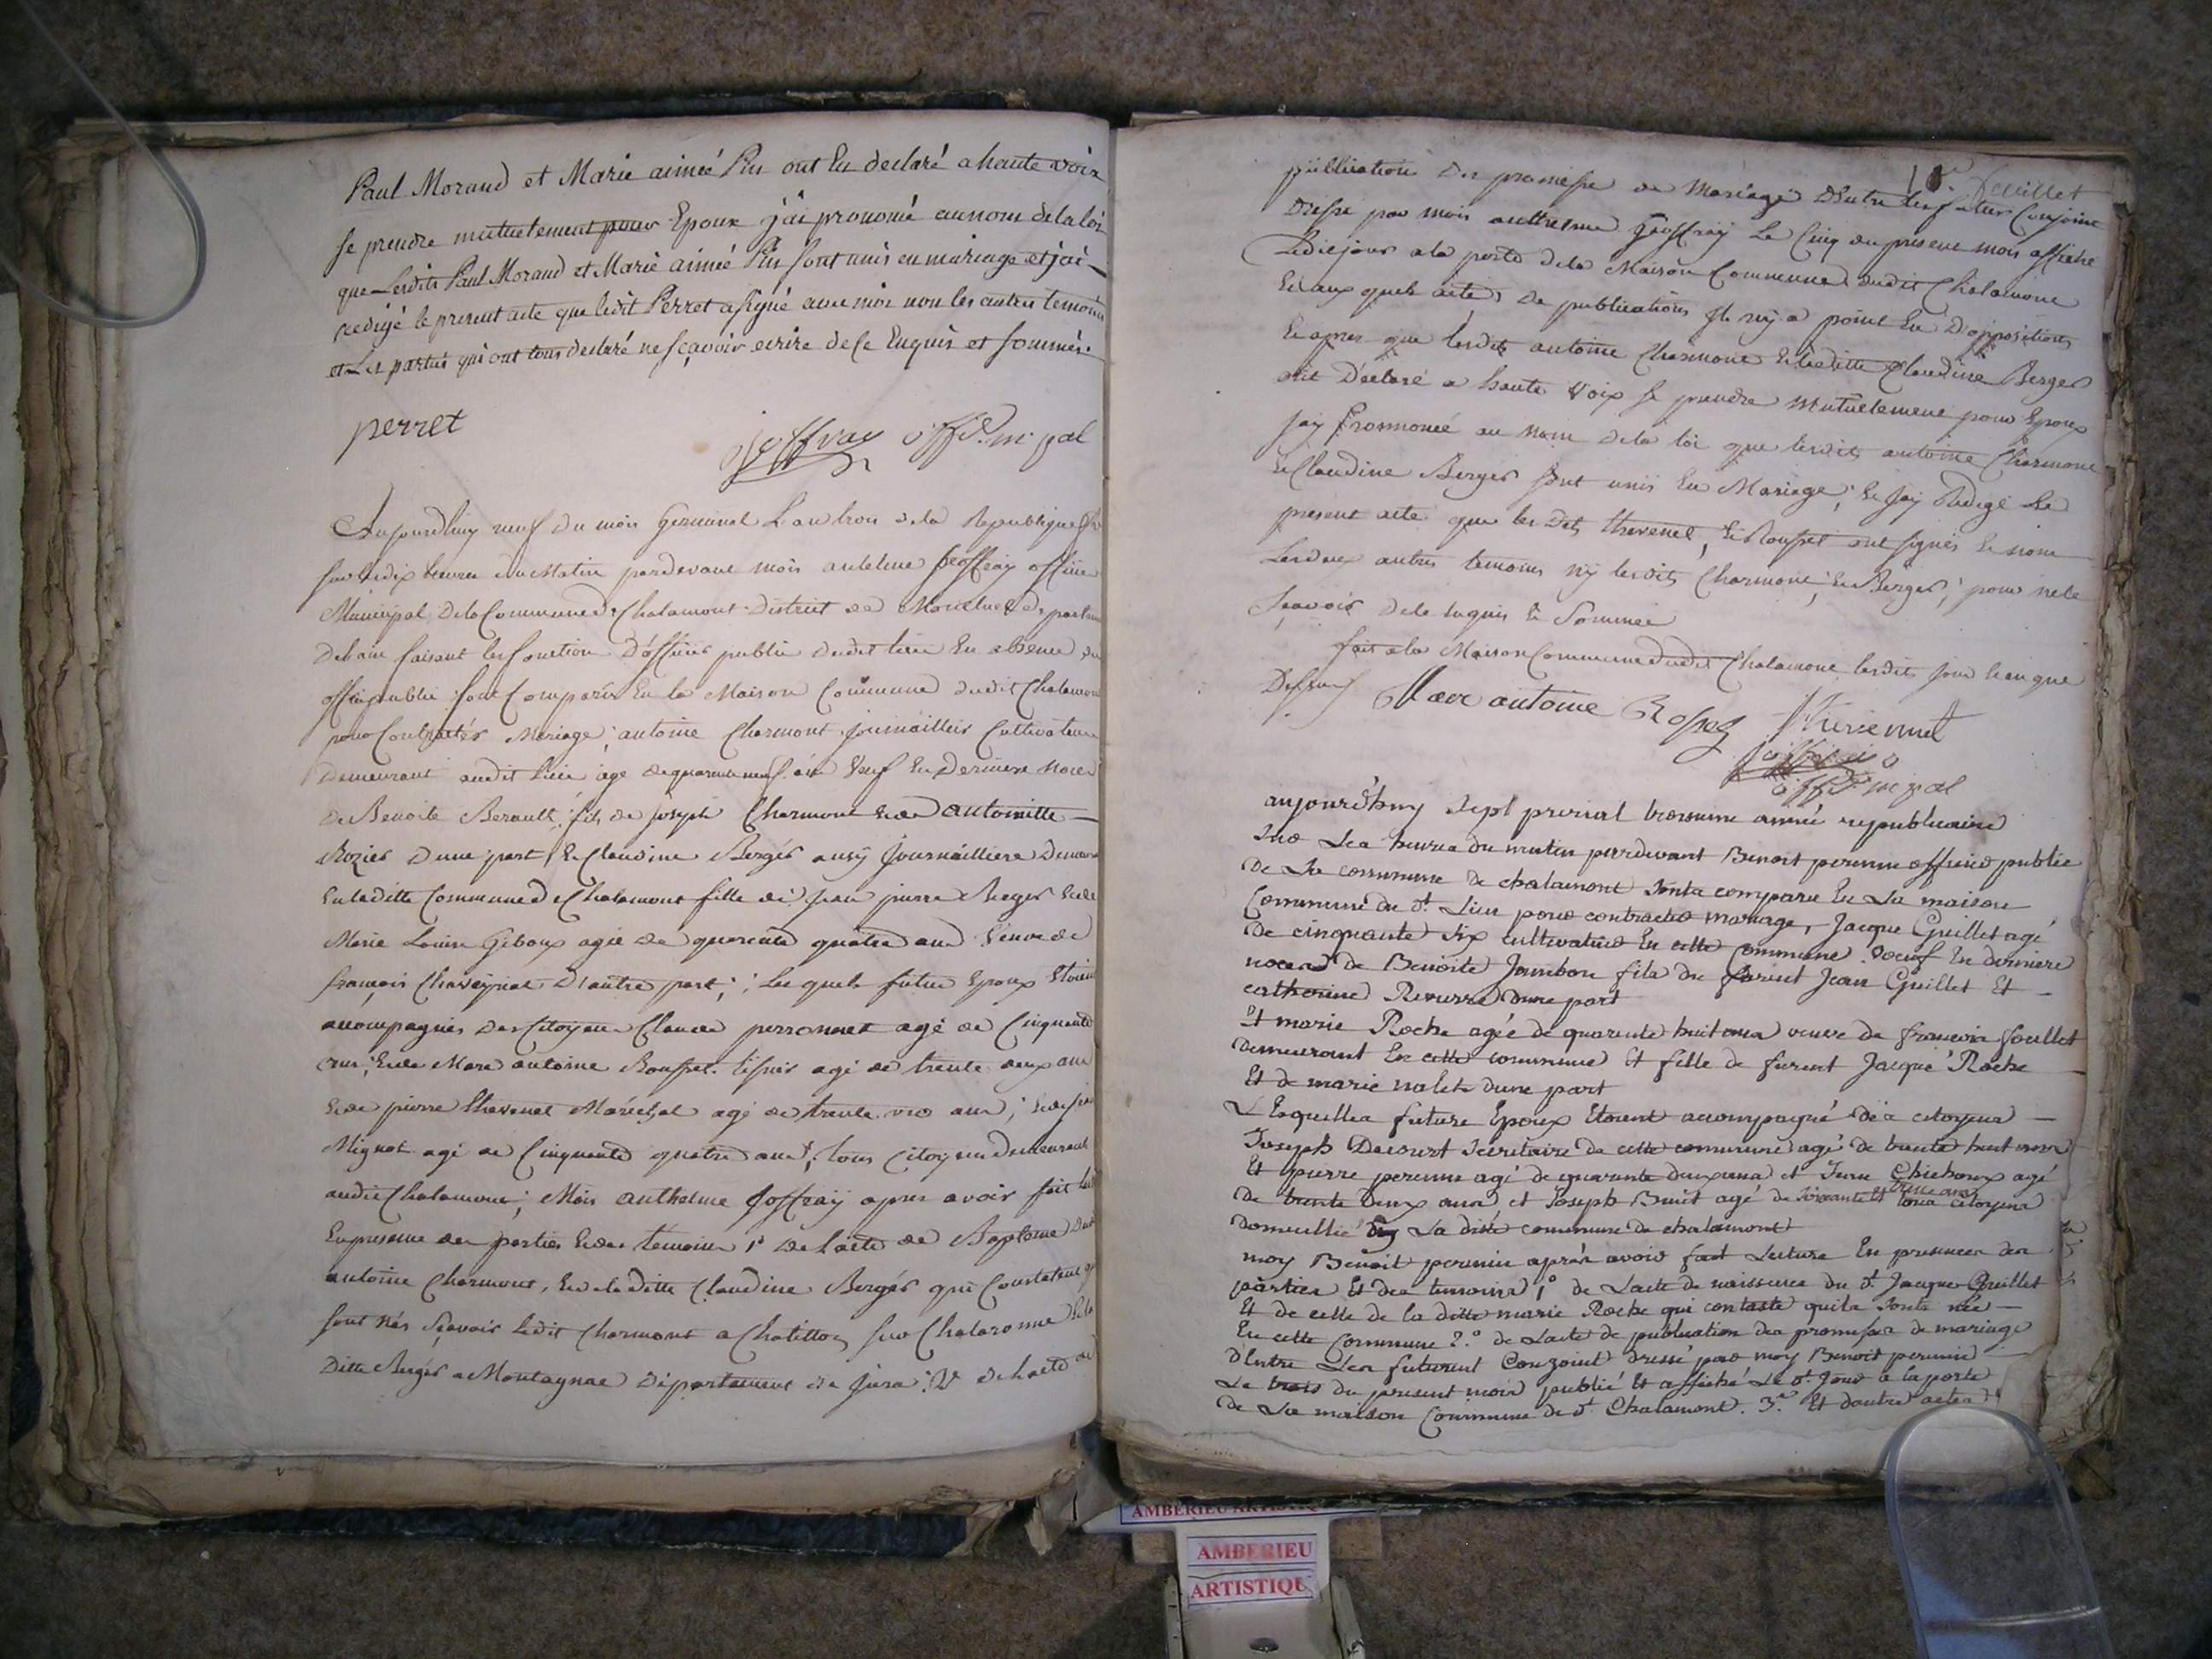 Paul Morand et Marie aimée Pin ont Eu declaré a haute voix
se prendre mutuelement pour Epoux j'ai prononcé au nom de la loi
que Lesdits Paul Morand et Marie aimée Pin sont unis en mariage et j'ai
redigé le present acte que ledit Perret a signé avec moi non les autres temoins
et Les parties qui ont tous declaré ne sçavoir ecrire de ce Enquis et sommés.
perret
joffray off.er m pal
Aujourdhuy neuf du mois Germinal L'an trois de la Republique
sur les dix heures du Matin pardevant mois antelme Joffray officier
Municipal De la Commune de Chalamont District de Montluel
De lain faisant les fonction D'officier public dudit lieu En absence
officier public sont Comparus En la Maison Commune dudit Chalamont
pour Contracter Mariage; antoine Charmont journaillier Cultivateur
Demeurant audit lieu agé de quarante neuf ans Veuf En Derniere Noces
De Benoite Berault, fils de joseph Charmont et de antoinette
Rozier Dune part; Et Claudine Berger ausy journailliere
En ladite Commune de Chalamont fille de jean pierre Berger et de
Marie Louise Giboux agée de quarente quatre ans Veuve de
françois D'autre part; Les quels futur Epoux Etoient
accompagnés des Citoyens Claude perronnet agé de Cinquante
ans; Et de Marc antoine Rousset Tissier agé de trente deux ans
Et de pierre thevenet Maréchal agé de trente ans;
Mignot agé de Cinquante quatre ans; tous Citoyens demeurant
audit Chalamont; Mois anthelme Joffray apres avoir fait
En presence des parties Et des temoins 1° de l'acte de Baptême
antoine Charmont, Et de laditte Claudine Berger qui Constatent
sont nés Sçavoir ledit Charmont a Chatillon sur Chalaronne
Ditte Berger a Montagnac Departement de jura; 2° de l'acte de
feuillet
publication Des promesse de Mariage D'Entre les futur Conjoint
Dressé par mois antheme Joffray Le Cinq du present mois affiché
Ledit jour a la porte de la Maison Commune dudit Chalamont
Et aux quels actes De publications Il ny a point Eu D'oppositions
Et apres que lesdits antoine Charmont Et laditte Claudine Berger
ont Déclaré a haute Voix se prendre Mutuellement pour Epoux
Jay Prononcé au Nom de la loi que lesdits antoine Charmont
Et Claudine Berger sont unis En Mariage; Et Jay Redigé Le
present acte que les Dits thevenet, Et Rousset ont signés Et non
Les deux autres temoins ny lesdits Charmont, Et Berger, pour ne le
Sçavoir De le Enquis Et Sommée
fait a la Maison Commune dudit Chalamont lesdits jour Et an que
Dessus
Marc antoine Rosset thevennet
joffray
off.er m pal
aujourdhuy sept prerial troisieme année republicaine
sur Les heures du matin pardevant Benoit perenin officier public
de La commune de chalamont sont comparu En La maison
Commune du dt. Lieu pour contracter mariage, Jacque Guillet agé
de cinquante six cultivateur En cette commune. Voeuf En derniere
noces de Benoite Jambon fils du furent Jean Guillet Et
catherine dune part
Et marie Roche agée de quarente huit ans veuve de francois foullet
demeurant En cette commune Et fille de furent Jacque Roche
Et de marie nalet dune part
Lesquelles future Epoux Etoient accompagné des citoyens
Joseph Decourt Secretaire de cette commune agé de trente huit ans
Et pierre perenin agé de quarante deux ans et Chichoux agé
de trente deux ans et Joseph Buut agé de soixante et treize ans tous citoyens
domicillié La dite commune de chalamont
moy Benoit perenin aprés avoir fait Lecture En presences des
parties Et des temoins 1° de Lacte de naissence du dt. Jacque Guillet
Et de celle de la ditte marie Roche qui contaste quils sont née
En cette Commune 2.° de Lacte de publication des promesses de mariage
d'Entre Les futurent Conjoint dressé par moy Benoit perenin
Le trois du present mois publié Et affiché Le dt. jour a la porte
de La maison Commune de dt. Chalamont. 3.° Et dautre actes
AMBERIEU ARTISTIQUE
AMBERIEU
ARTISTIQUE